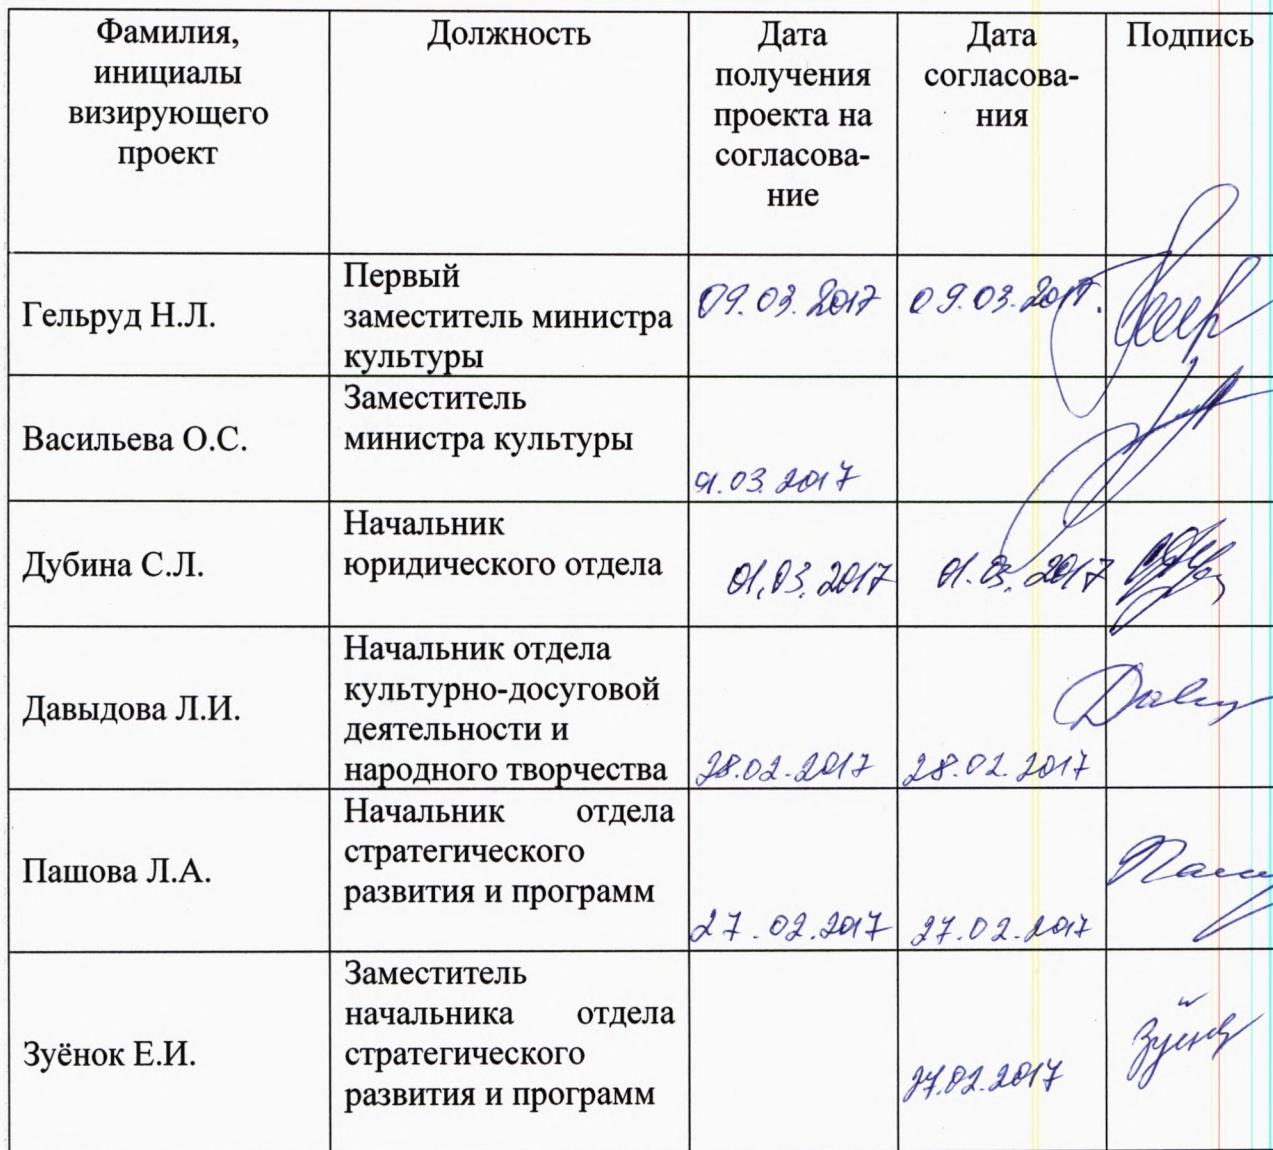 Фамилия,
инициалы
визирующего
проект
Должность
Дата
получения
проекта на
согласова-
ние
Дата
согласова-
ния
Подпись
Гельруд Н.Л.
Первый
заместитель министра
культуры
09.03.2017
09.03.2017.
Васильева О.С.
Заместитель
министра культуры
9.03.2017
Дубина С.Л.
Начальник
юридического отдела
01.03.2017
01.03.2017
Давыдова Л.И.
Начальник отдела
культурно-досуговой
деятельности и
народного творчества
28.02.2017
28.02.2017
Пашова Л.А.
Начальник отдела
стратегического
развития и программ
27.02.2017
27.02.2017
Зуёнок Е.И.
Заместитель
начальника отдела
стратегического
развития и программ
27.02.2017